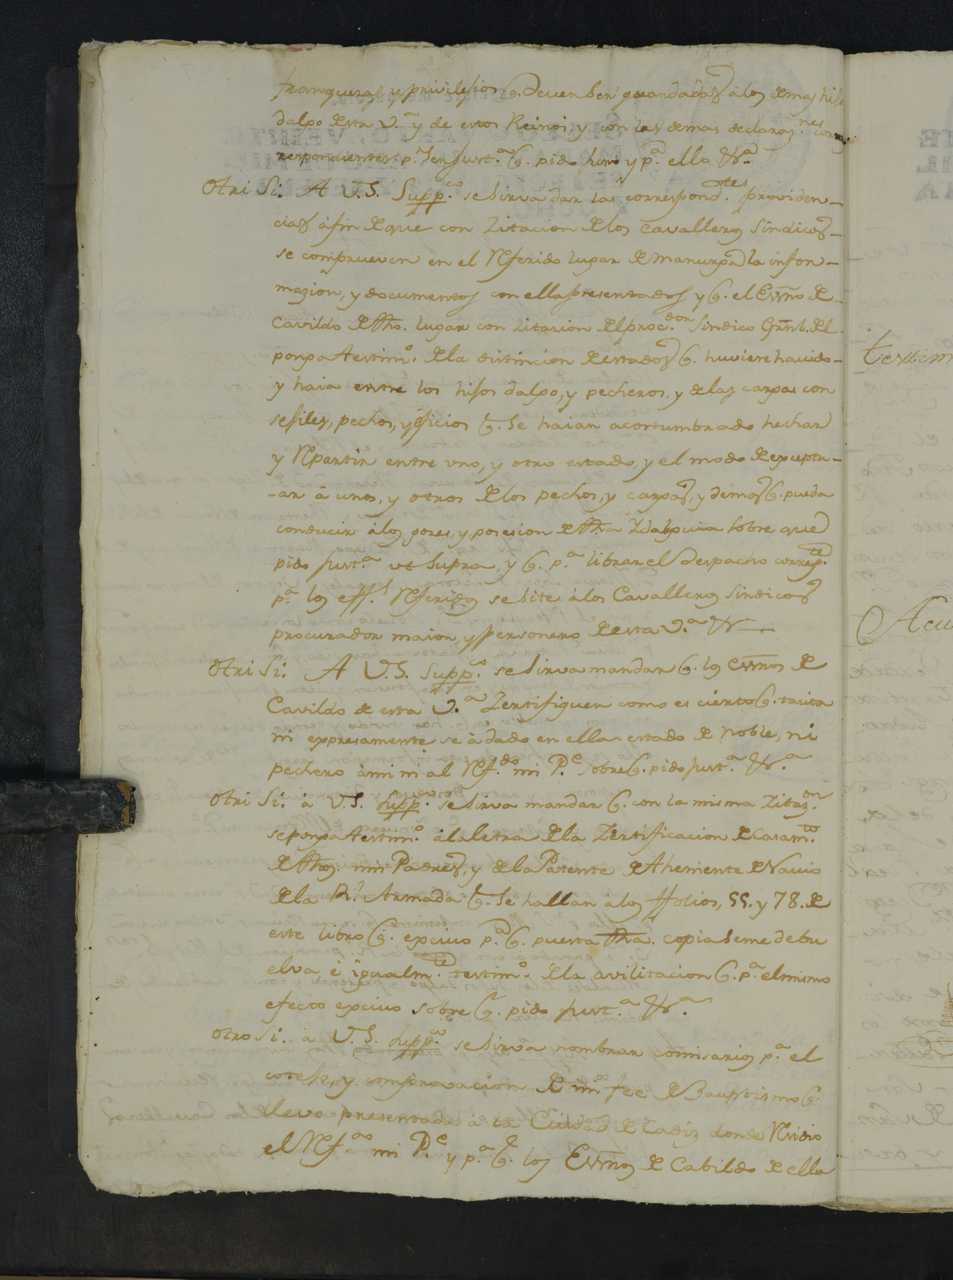 franquezas y privilegios q. deven ser guardados â los demas hijos
dalgo desta V.ª y de estos Reinos, y con las demas declaraz.nes corre
respondientes p.r ser just.ª q. pido juro y p.ª ello &.ª
Otri Si: A V.S. Supp.co se sirva dar las correspond.tes providen-
cias â fin de que con zitacion de los Cavalleros Sindicos
se comprueven en el Referido lugar de la infor-
mazion, y documentos con ella presentados y q. el Essno de
Cavildo de dho. lugar con zitacion del proc.dor Sindico Gral. del
ponga testim.º de la distincion de estados q. huviere havido
y haia entre los hijos dalgo, y pecheros, y de las cargas con
sejiles, pechos, y oficios q. se haian acostumbrado hechar
y Repartir entre uno, y otro estado, y el modo de exceptu-
-ar â unos, y otros de los pechos, y cargas, y demas q. pueda
conducir â los gozes, y posesion de dha Ydalguia sobre que
pido just.ª ut supra, y q. p.ª librar el Despacho corresp.te
p.ª los eff.s Referidos se site â los Cavalleros Sindicos
procurador maior, y personero de esta V.ª &.
Otri Si: A V.S. Supp.co se sirva mandar q. los Essnos de
Cavildo de esta V.ª Zertifiquen como es cierto q. tacita
ni expresamente se â dado en ella estado de noble, ni
pechero â mi ni al Ref.do mi P.e sobre q. pido just.ª &.ª
Otri Si: â V.S. Supp.co se sirva mandar q. con la misma zitaz.on
se ponga testim.º â la letra de la Zertificacion de Casam.to
de dhos. mis Padres, y de la Patente de theniente de Navio
de la R.l Armada q. se hallan â los ffolios, 55. y 78. de
este libro q. exivo p.ª q. puesta dha. copia se me debu
elva ê igualm.te testim.º de la avilitacion q. p.ª el mismo
efecto exivo sobre q. pido just.ª &.ª
Otro Si: â V.S. Supp.co se sirva nombrar comisarios p.ª el
cotejo, y comprovacion de mi fee de Bauptismo q.
llevo presentada â la Ciudad de Cadiz donde Recidio
el Ref.do mi P.e y p.ª q. los Essnos de Cabildo de ella